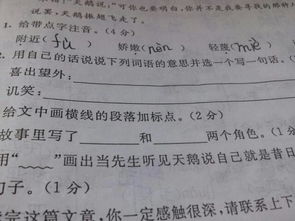 天鹅说："可你也要明白,你并不是我
说罢,天鹅振翅飞走了。
1. 给带点字注音。(4分)
附近( fù ) 娇嫩( nèn ) 轻蔑( miè )
2. 用自己的话说说下列词语的意思并选一个写一句话。
喜出望外:
讥笑:
给文中画横线的段落加标点。(2分)
故事里写了 和 两个角色。(1
用"﹏﹏"画出当先生听见天鹅说自己就是昔日
句子。(1分)
读完这篇文章,你一定感触很深,请联系上下